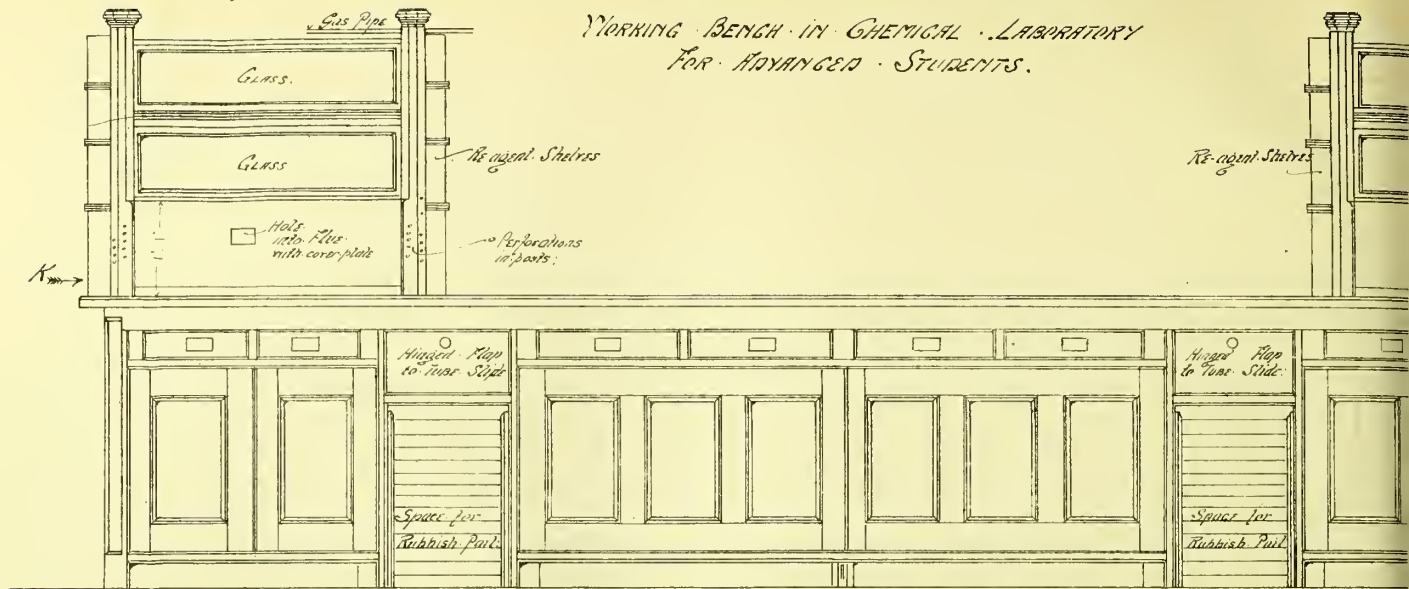 Gas Pipe
WORKING · BENCH · IN · CHEMICAL · LABORATORY
FOR · ADVANCED · STUDENTS.
GLASS.
GLASS
Re-agent. Shelves
Re-agent. Shelves
Hole
into. Flue.
with cover plate
Perforations
in posts.
K
Hinged. Flap
to. TUBE. Slide
Hinged Flap
to TUBE. Slide.
Space for
Rubbish. Pail.
Space for
Rubbish Pail